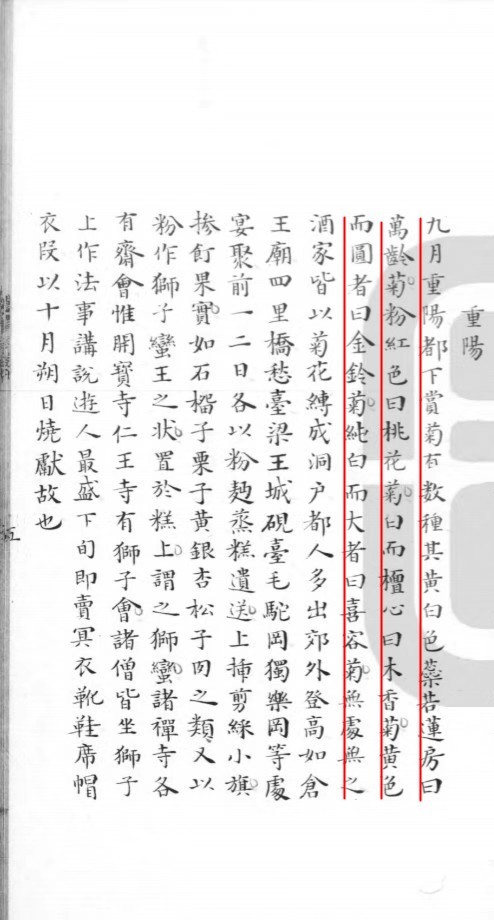 重陽
九月重陽都下賞菊有数種其黄白色蘂若蓮房曰
萬齡菊粉紅色曰桃花菊白而檀心曰木香菊黄色
而圓者曰金鈴菊純白而大者曰喜容菊無處無之
酒家皆以菊花縛成洞户都人多出郊外登高如倉
王廟四里橋愁臺梁王城硯臺毛駝岡獨樂岡等處
宴聚前一二日各以粉麪蒸糕遺送上揷剪綵小旗
摻飣果實如石榴子栗子黄銀杏松子肉之類又以
粉作獅子蠻王之狀置於糕上謂之獅蠻諸禪寺各
有齋會惟開寳寺仁王寺有獅子會諸僧皆坐獅子
上作法事講說遊人最盛下旬即賣冥衣靴鞋席帽
衣段以十月朔日燒獻故也